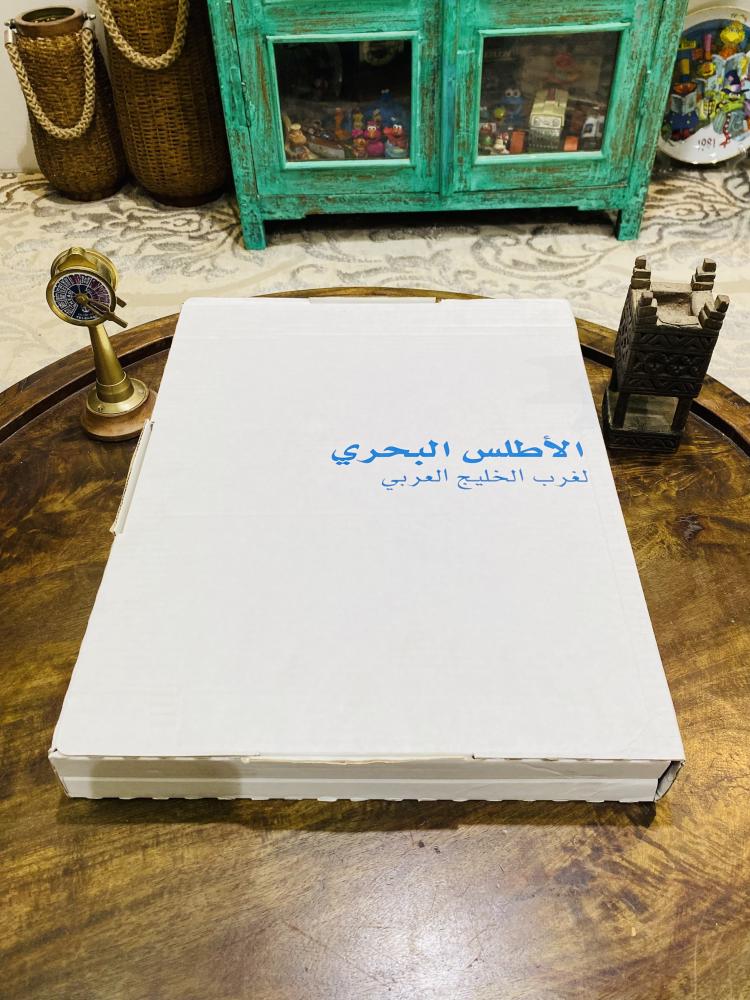 الأطلس البحري
لغرب الخليج العربي